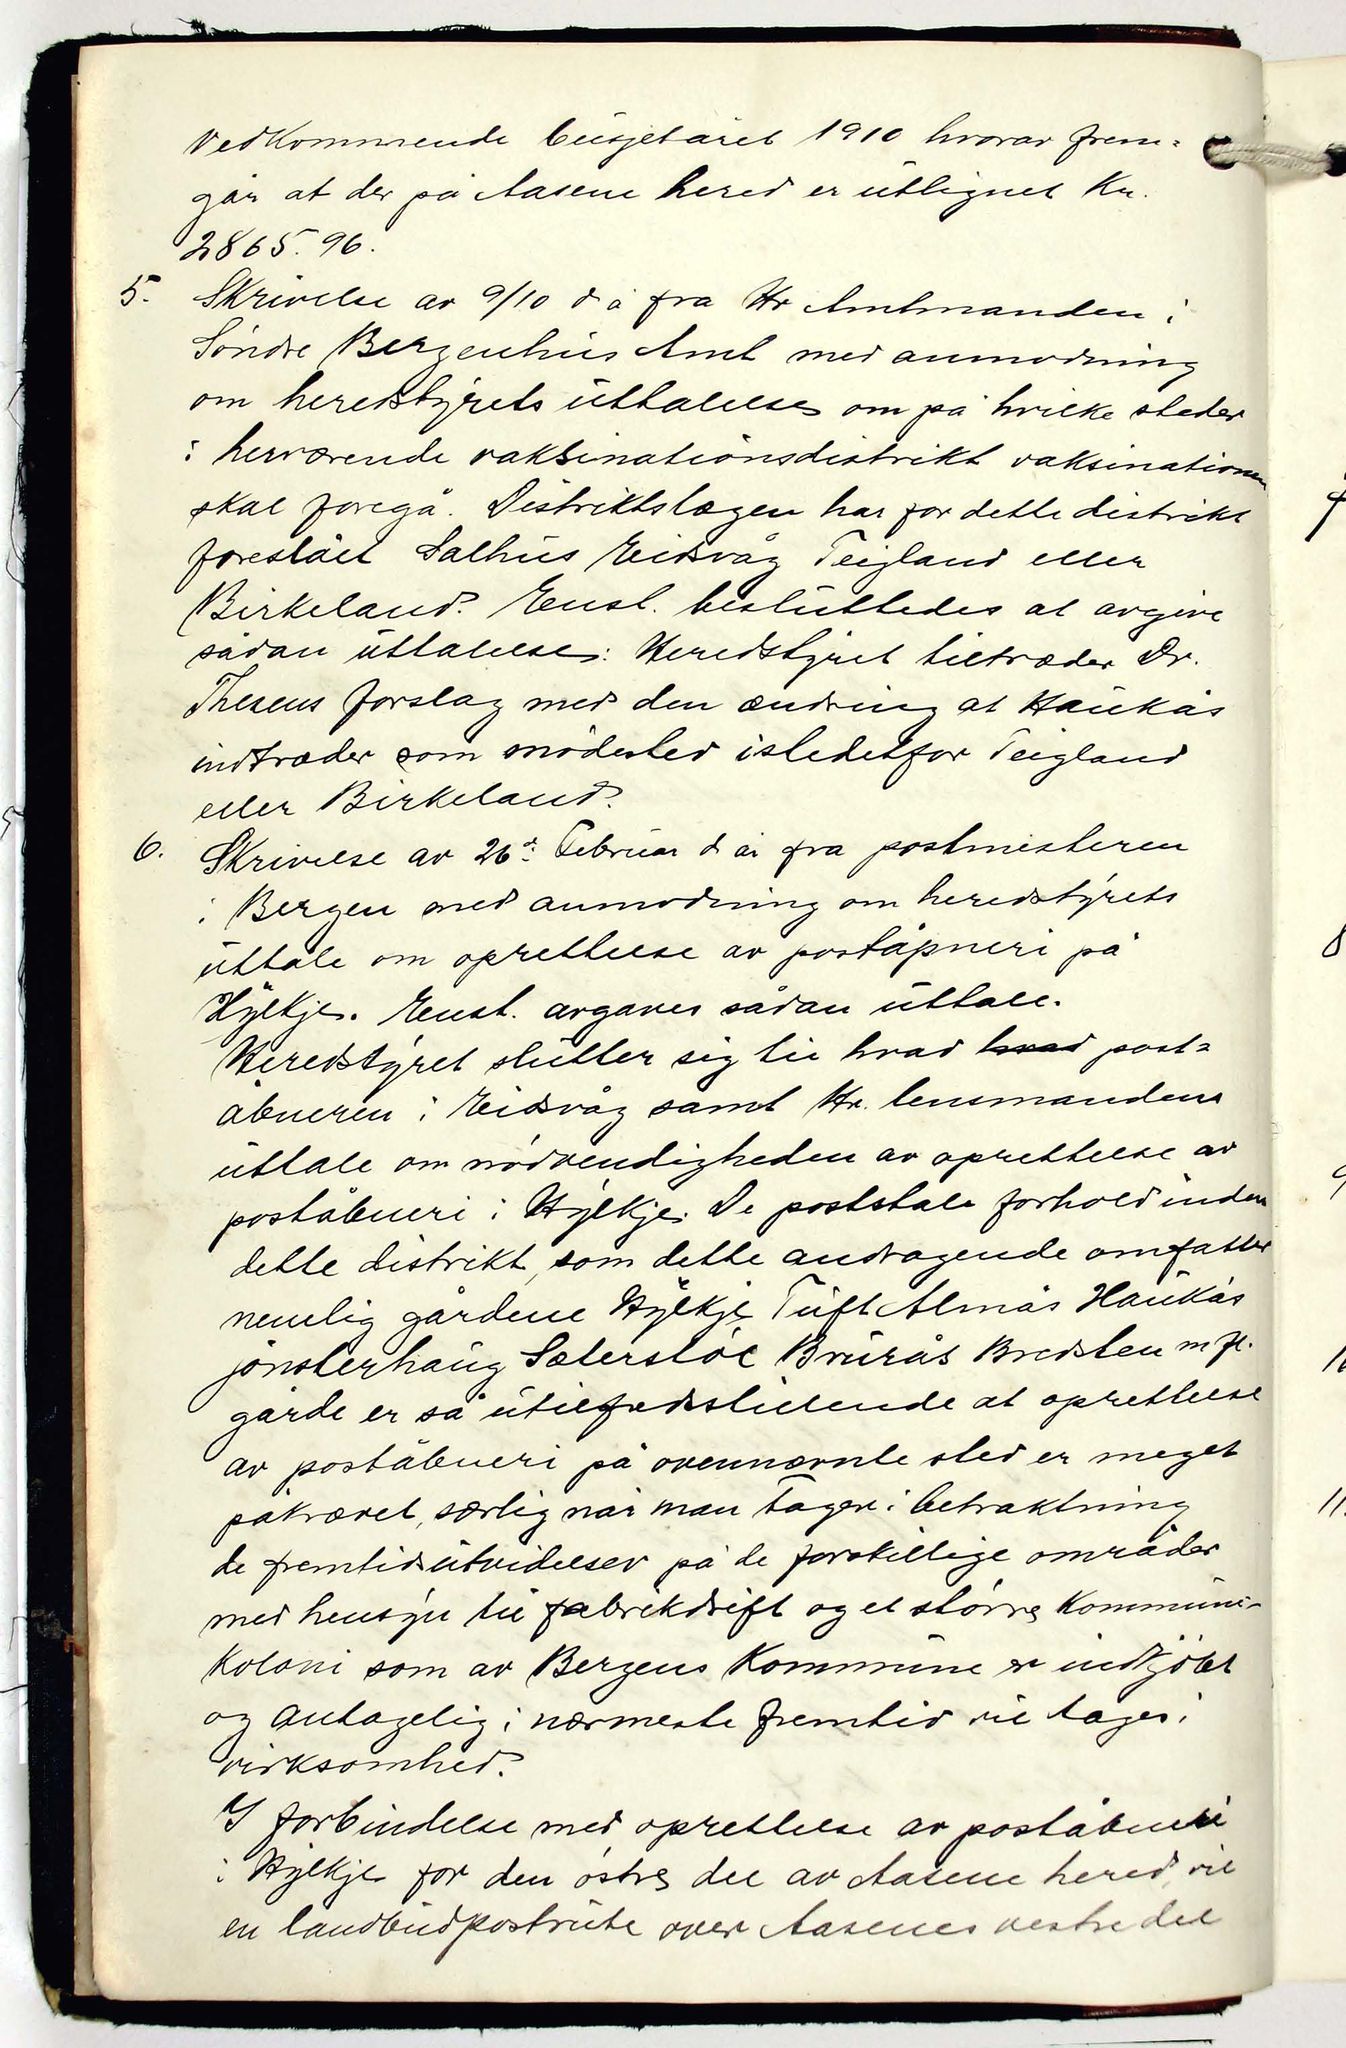 vedkommende busjetåret 1910 hvorav frem-
går at der på Aasene hered er utlignet Kr.
2865.96.
5. Skrivelse av 9/10 d å fra Hr Amtmanden i
Söndre Bergenhus Amt med anmodning
om heredstyrets uttalelse om på hvilke steder
i herværende vaksinationsdistrikt vaksinationen
skal foregå. Distriktslægen har for dette distrikt
foreslået Salhus Eidsvåg Teigland eller
Birkeland. Enst. besluttedes at avgive
sådan uttalelse: Heredstyret tiltræder Dr.
Thesens forslag med den ændring at Haukås
indtræder som mödested istedetfor Teigland
eller Birkeland.
6. Skrivelse av 26d: Februar d år fra postmesteren
i Bergen med anmodning om heredstyrets
uttale om oprettelse av poståpneri på
Hylkje. Enst. avgaves sådan uttale.
Heredstyret slutter sig til hvad hvad post-
åbneren i Eidsvåg samt Hr. lensmandens
uttale om nödvendigheden av oprettelse av
poståbneri i Hylkje. De poststale forhold inden
dette distrikt, som dette andragende omfatter
nemlig gårdene Hylkje Tuft Almås Haukås
jönsterhaug Sæterstöl Brurås Bredsten m fl.
gårde er så utilfredsstillende at oprettelse
av poståbneri på ovennævnte sted er meget
påkrævet, særlig når man tager i betraktning
de fremtidsutvidelser på de forskillige områder
med hensyn til fabrikdrift og et större Kommuni-
koloni som av Bergens Kommune er indkjöbt
og antagelig i nærmeste fremtid vil tages i
virksomhed.
I forbindelse med oprettelse av poståbneri
i Hylkje for den östre del av Aasene hered, vil
en landbudpostrute over Aasenes vestre del
5
8
9
11.